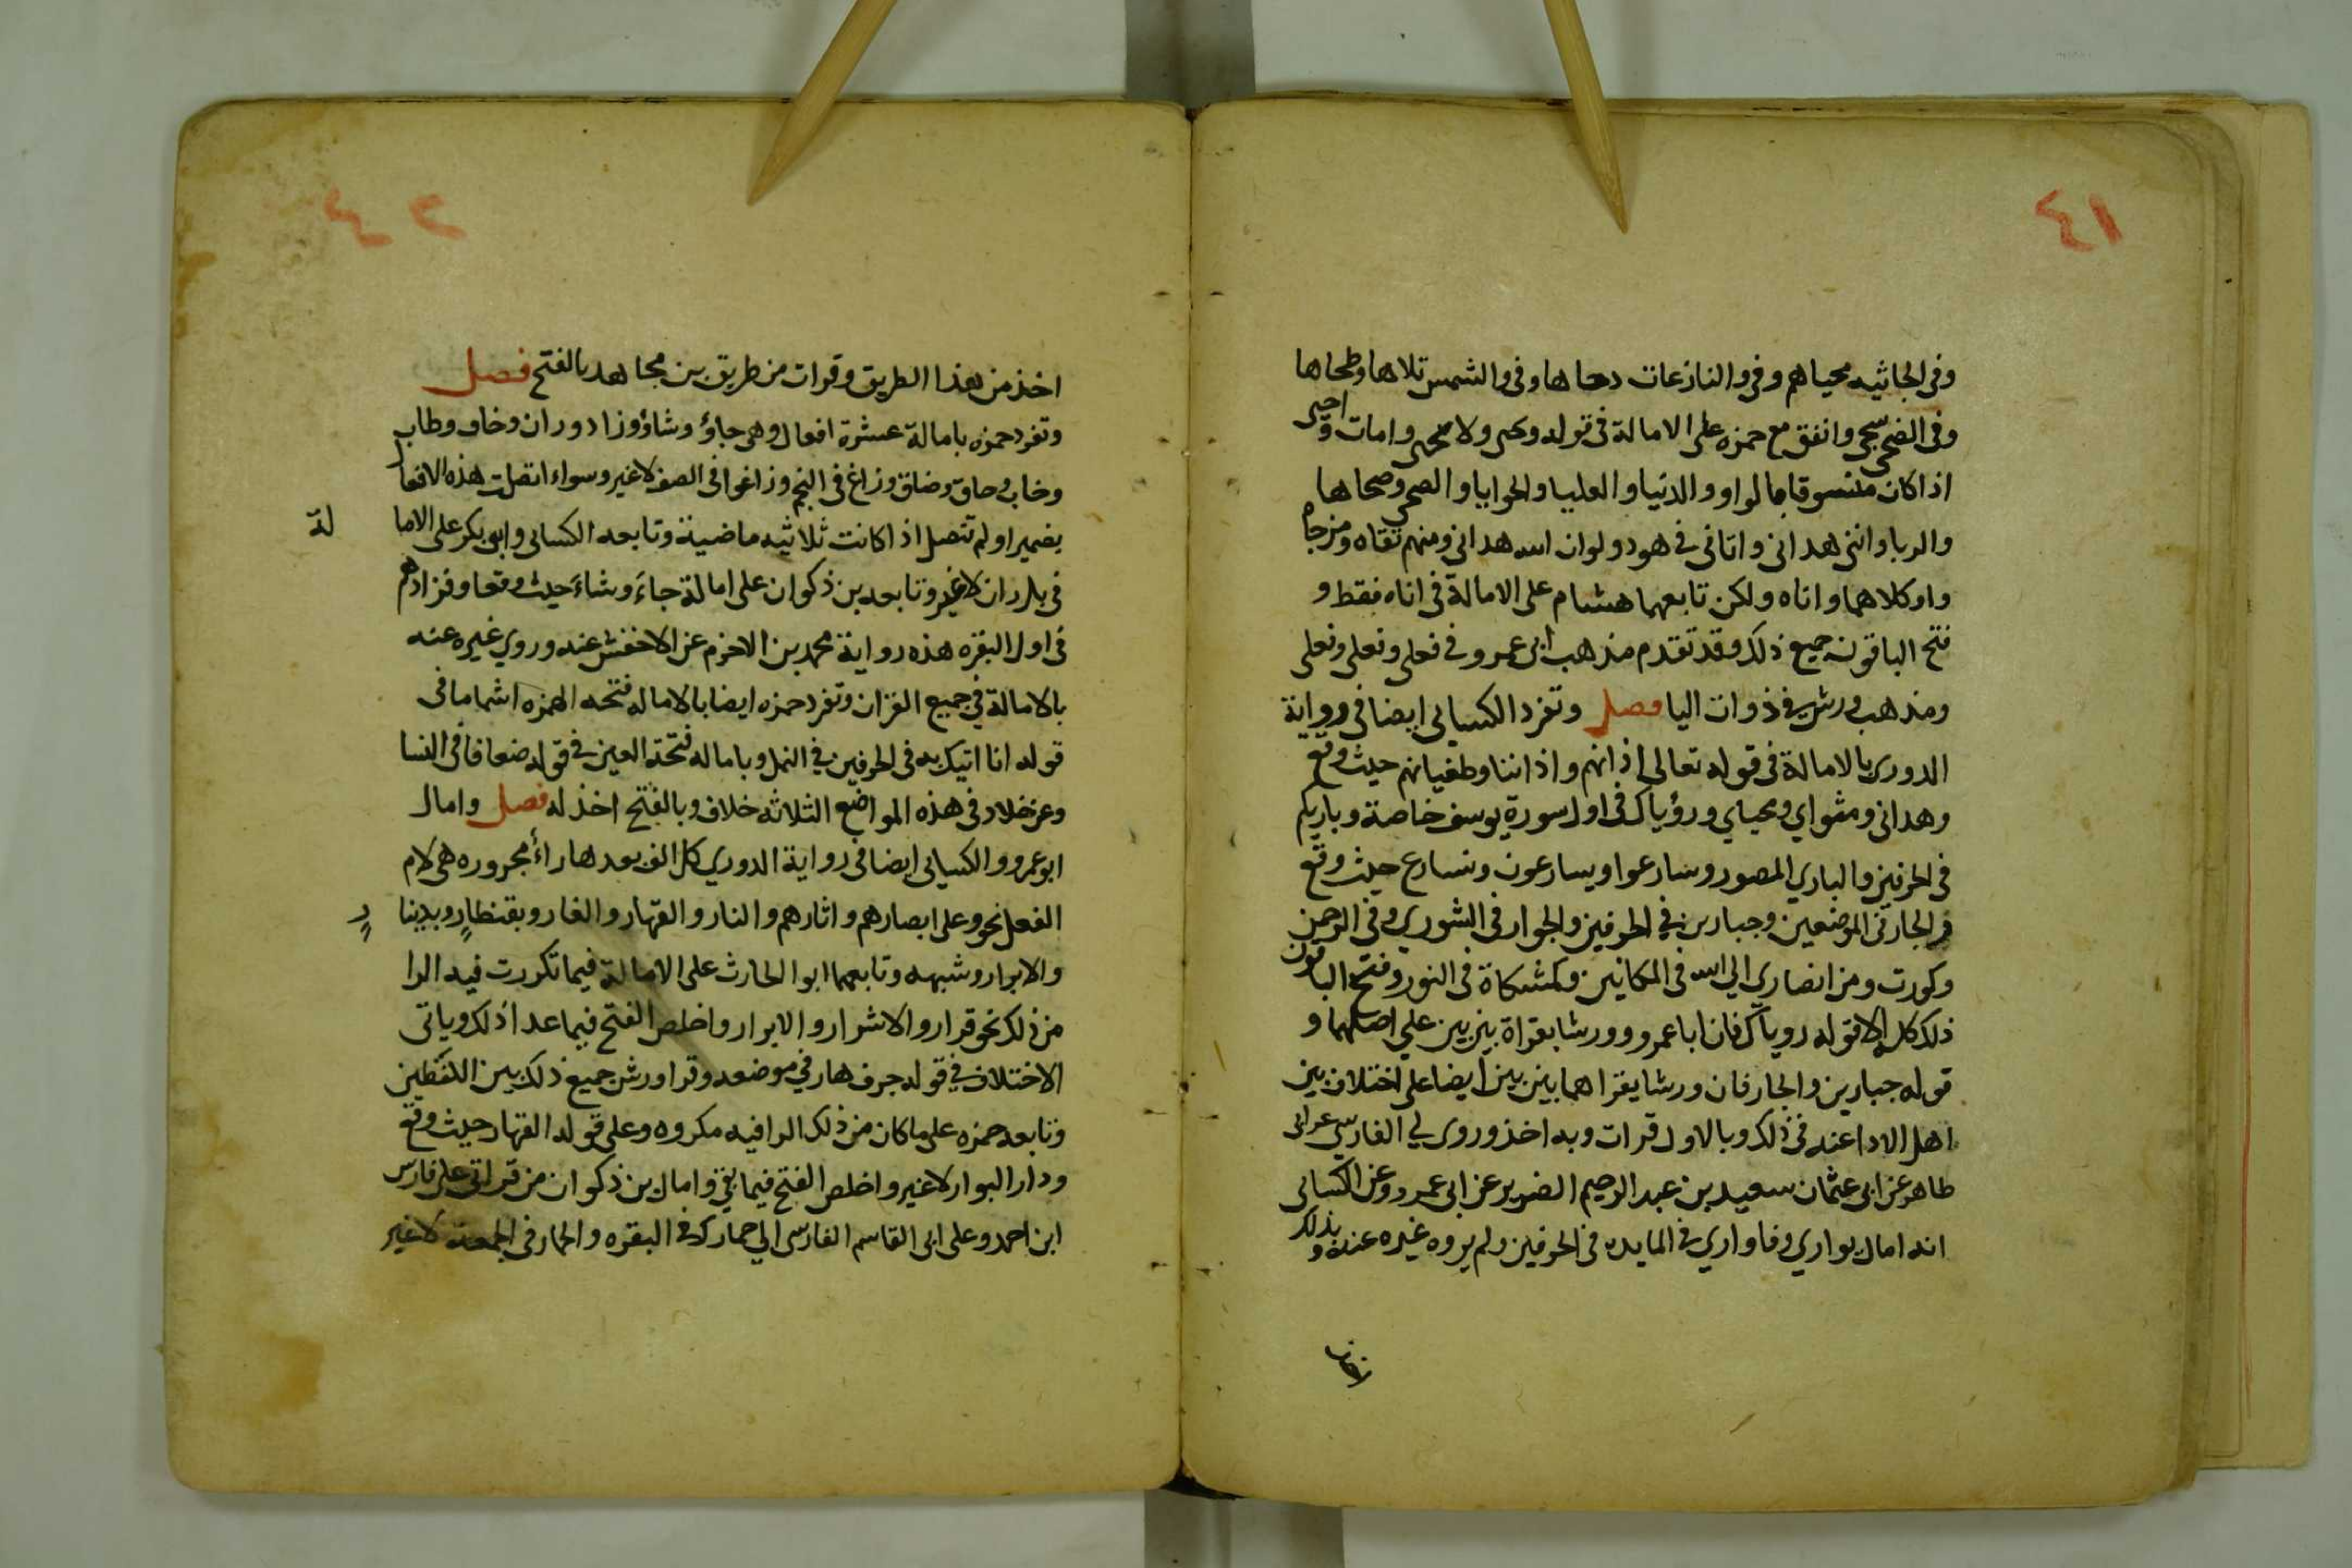 ٤١
وفى الجاثيه محياهم وفى والنازعات دحاها وفى والشمس تلاها وطحاها
وفى الضحى سجى واتفق مع حمزه على الامالة فى قوله ويحيى ولا يحيى وامات واحيى
اذا كان منسوقا بالواو والدنيا والعليا والحوايا والضحى وضحاها
والربا واننى هدانى واتانى فى هود ولو ان الله هدانى ومنهم تقاه ومزجاه
واو كلاهما واناه ولكن تابعهما هشام على الامالة فى اناه فقط و
فتح الباقون جميع ذلك وقد تقدم مذهب ابى عمرو فى فعلى وفعلى وفعلى
ومذهب ورش فى ذوات اليا فصل وتفرد الكسائى ايضا فى رواية
الدورى بالامالة فى قوله تعالى اذانهم واذاننا وطغيانهم حيث وقع
وهدانى ومثواي ومحياي ورؤياك فى اول سورة يوسف خاصة وباريكم
فى الحرفين والباري المصور وسارعوا ويسارعون ونسارع حيث وقع
والجار فى الموضعين وجبارين فى الحرفين والجوار فى الشوري وفى الرحمن
وكورت ومن انصاري الى الله فى المكانين وكمشكاة فى النور وفتح الباقون
ذلك كله الا قوله روياك فان ابا عمرو وورشا بقراة بين بين على اصلهما و
قوله جبارين والجار فان ورشا يقراهما بين بين ايضا على اختلاف بين
اهل الادا عنه فى ذلك وبالاول قرات وبه اخذ وروى لي الفارسي عن ابى
طاهر عن ابى عثمان سعيد بن عبد الرحيم الضرير عن ابى عمرو وعن الكسائى
انه امال يواري وفاواري فى المايده فى الحرفين ولم يروه غيره عنه وبذلك
اخذ من هذا الطريق وقرات من طريق بن مجاهد بالفتح فصل
وتفرد حمزه بامالة عشرة افعال وهى جاؤ وشاؤ وزاد وران وخاف وطاب
وخاب وحاق وضاق وزاغ فى النجم وزاغوا فى الصف لا غير وسواء اتصلت هذه الافعال
بضمير او لم تتصل اذا كانت ثلاثيه ماضية وتابعه الكسائى وابو بكر على الامالة
فى بل ران لا غير وتابعه بن ذكوان على امالة جاءَ وشاءَ حيث وقعا وفزادهم
فى اول البقره هذه رواية محمد بن الاخرم عن الاخفش عنه وروي غيره عنه
بالامالة فى جميع القران وتفرد حمزه ايضا بالاماله فتحه الهمزه اشماما فى
قوله انا اتيك به فى الحرفين فى النمل وباماله فتحة العين فى قوله ضعافا فى النسا
وعن خلاد فى هذه المواضع الثلاثه خلاف وبالفتح اخذ له فصل وامال
ابو عمرو والكسائى ايضا فى رواية الدوري كل الف بعدها راءٌ مجروره هى لام
الفعل نحو وعلى ابصارهم واثارهم والنار والقهار والغار وبقنطارٍ وبدينارٍ
والابرار وشبهه وتابعهما ابو الحارث على الامالة فيما تكررت فيه الرا
من ذلك نحو قرار والاشرار والابرار واخلص الفتح فيما عدا ذلك وياتى
الاختلاف فى قوله جرف هار فى موضعه وقرا ورش جميع ذلك بين اللفظين
وتابعه حمزه على ما كان من ذلك الرا فيه مكروه وعلى قوله القهار حيث وقع
ودار البوار لا غير واخلص الفتح فيما بقي وامال بن ذكوان من قراتى على فارس
ابن احمد وعلى ابى القاسم الفارسى الى حمارك فى البقره والحمار فى الجمعة لا غير